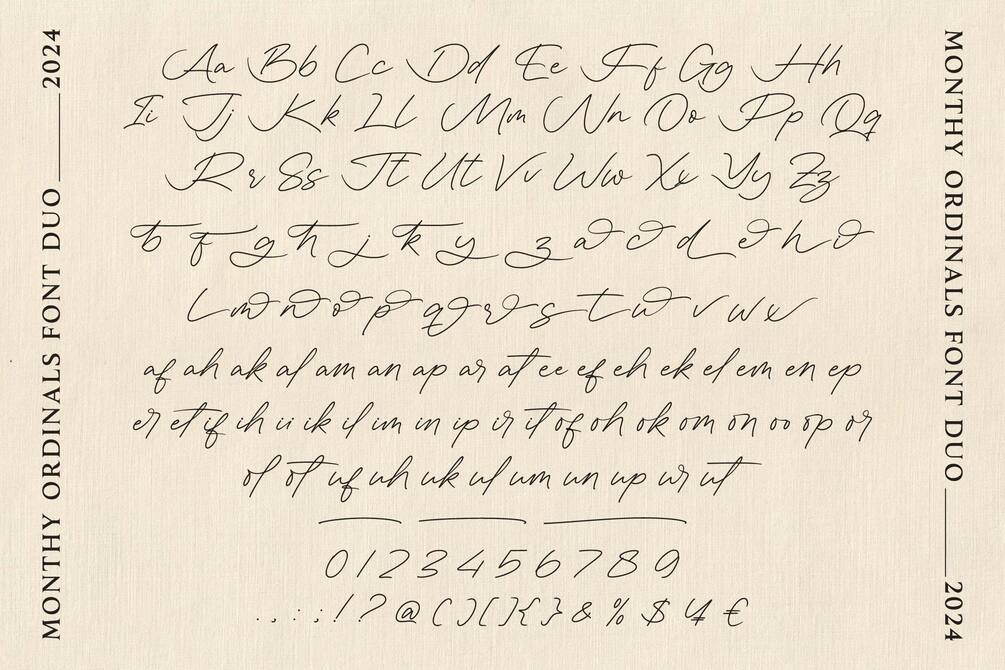 MONTHY ORDINALS FONT DUO 2024
Aa Bb Cc Dd Ee Ff Gg Hh
Ii Jj Kk Ll Mm Nn Oo Pp Qq
Rr Ss Tt Ut Vv Ww Xx Yy Zz
b f g h j k y z a c d e h i
l m n o p q r s t u v w x
af ah ak al am an ap ar at ee ef eh ek el em en ep
er et if ih ii ik il im in ip ir it of oh ok om on oo op or
ol ot uf uh uk ul um un up ur ut
0 1 2 3 4 5 6 7 8 9
. , : ; ! ? @ ( ) [ ] { } & % $ ¥ €
MONTHY ORDINALS FONT DUO 2024